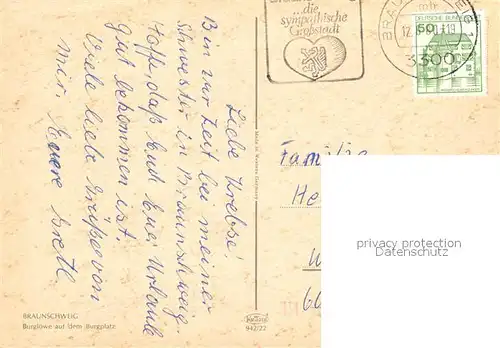 ...die
sympathische
Großstadt
DEUTSCHE BUNDESPOST
50
3300
Liebe Krebse!
Bin zur Zeit bei meiner
Schwester in Braunschweig.
Hoffe, daß Euch Euer Urlaub
gut bekommen ist.
Viele liebe Grüße von
mir. Euere Gretl
Made in Western Germany
Familie
He
W
66
privacy protection
Datenschutz
BRAUNSCHWEIG
Burglöwe auf dem Burgplatz
942/22